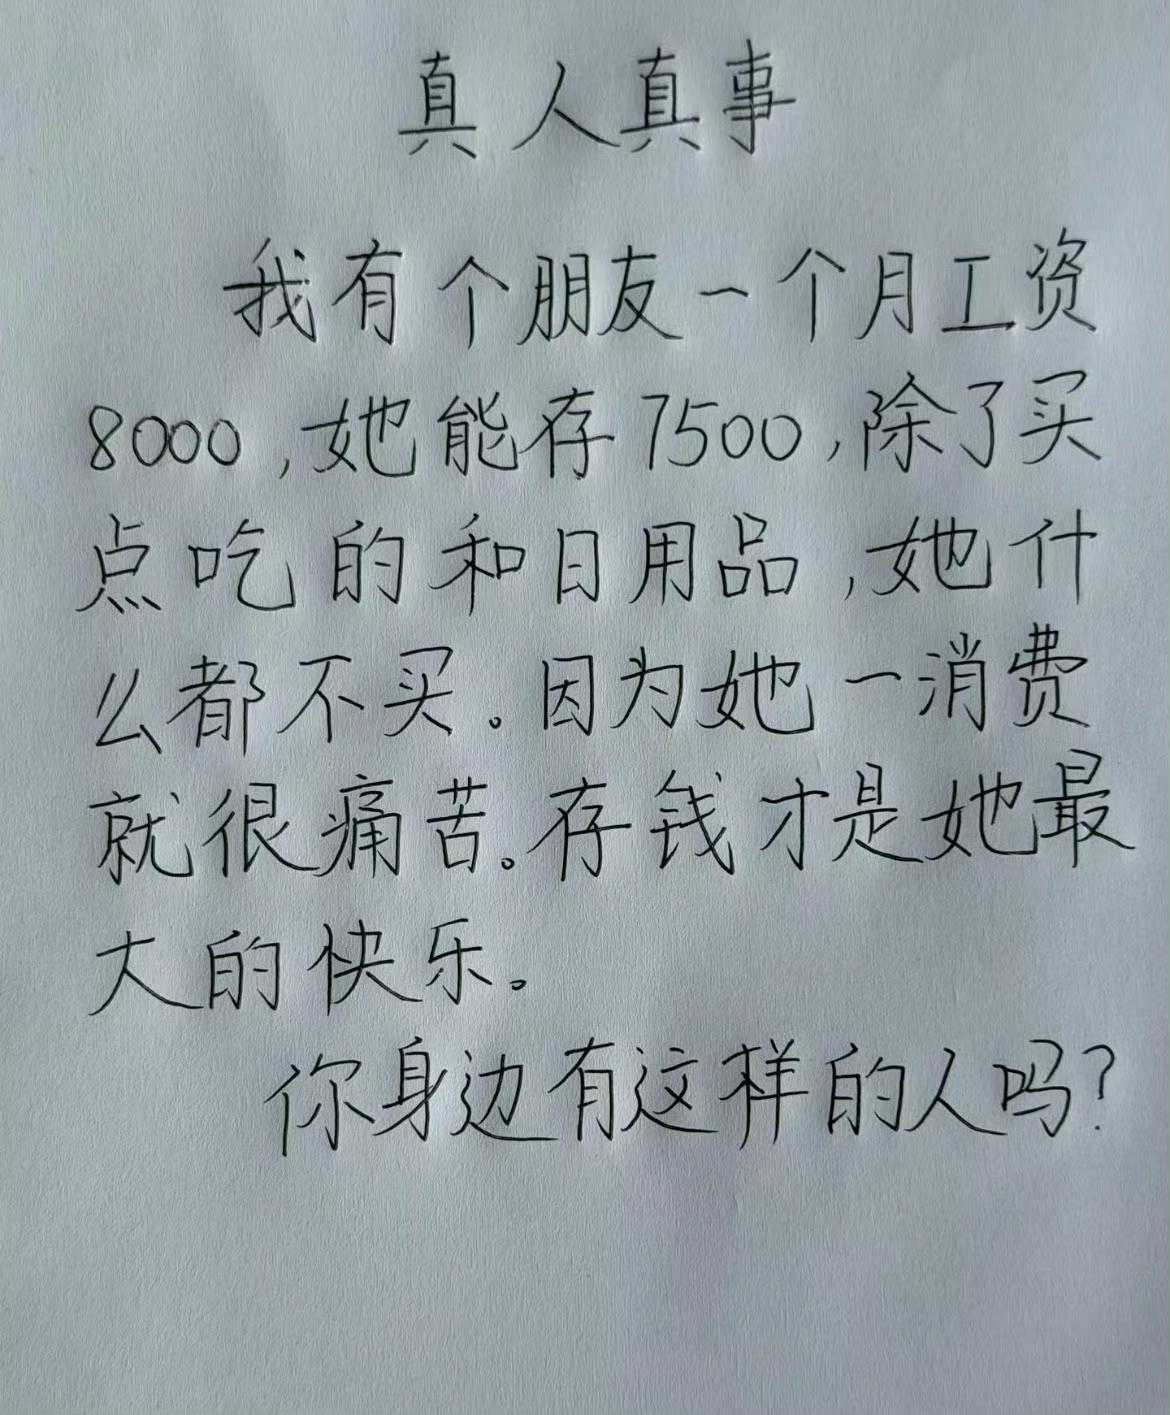 真人真事
我有个朋友一个月工资
8000,她能存7500,除了买
点吃的和日用品,她什
么都不买。因为她一消费
就很痛苦。存钱才是她最
大的快乐。
你身边有这样的人吗?